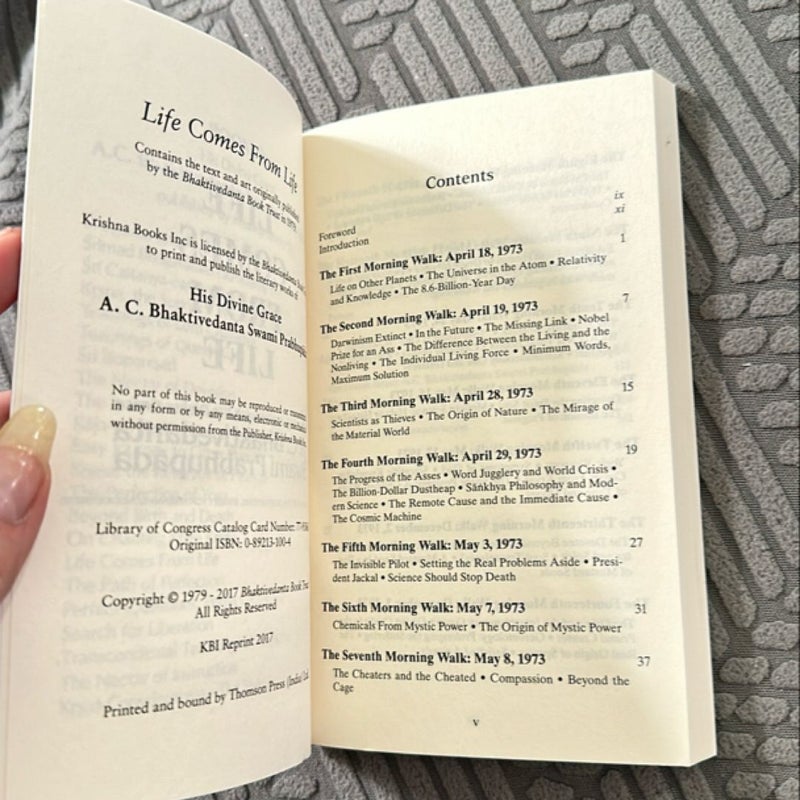 Life Comes From Life
Contains the text and art originally published
by the Bhaktivedanta Book Trust in 1979.
Krishna Books Inc is licensed by the Bhaktivedanta
to print and publish the literary works of
His Divine Grace
A. C. Bhaktivedanta Swami Prabhupada
No part of this book may be reproduced or
in any form or by any means, electronic or
without permission from the Publisher, Krishna
Library of Congress Catalog Card Number:
Original ISBN: 0-89213-100-4
Copyright © 1979 - 2017 Bhaktivedanta Book
All Rights Reserved
KBI Reprint 2017
Printed and bound by Thomson Press (India)
Contents
Foreword ix
Introduction xi
The First Morning Walk: April 18, 1973 1
Life on Other Planets • The Universe in the Atom • Relativity
and Knowledge • The 8.6-Billion-Year Day
The Second Morning Walk: April 19, 1973 7
Darwinism Extinct • In the Future • The Missing Link • Nobel
Prize for an Ass • The Difference Between the Living and the
Nonliving • The Individual Living Force • Minimum Words,
Maximum Solution
The Third Morning Walk: April 28, 1973 15
Scientists as Thieves • The Origin of Nature • The Mirage of
the Material World
The Fourth Morning Walk: April 29, 1973 19
The Progress of the Asses • Word Jugglery and World Crisis •
The Billion-Dollar Dustheap • Sāṅkhya Philosophy and Mod-
ern Science • The Remote Cause and the Immediate Cause •
The Cosmic Machine
The Fifth Morning Walk: May 3, 1973 27
The Invisible Pilot • Setting the Real Problems Aside • Presi-
dent Jackal • Science Should Stop Death
The Sixth Morning Walk: May 7, 1973 31
Chemicals From Mystic Power • The Origin of Mystic Power
The Seventh Morning Walk: May 8, 1973 37
The Cheaters and the Cheated • Compassion • Beyond the
Cage
v